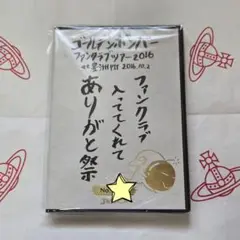 ゴールデンボンバー
ファンクラブツアー2016
2016.10.2
ファンクラブ
入っててくれて
ありがと祭